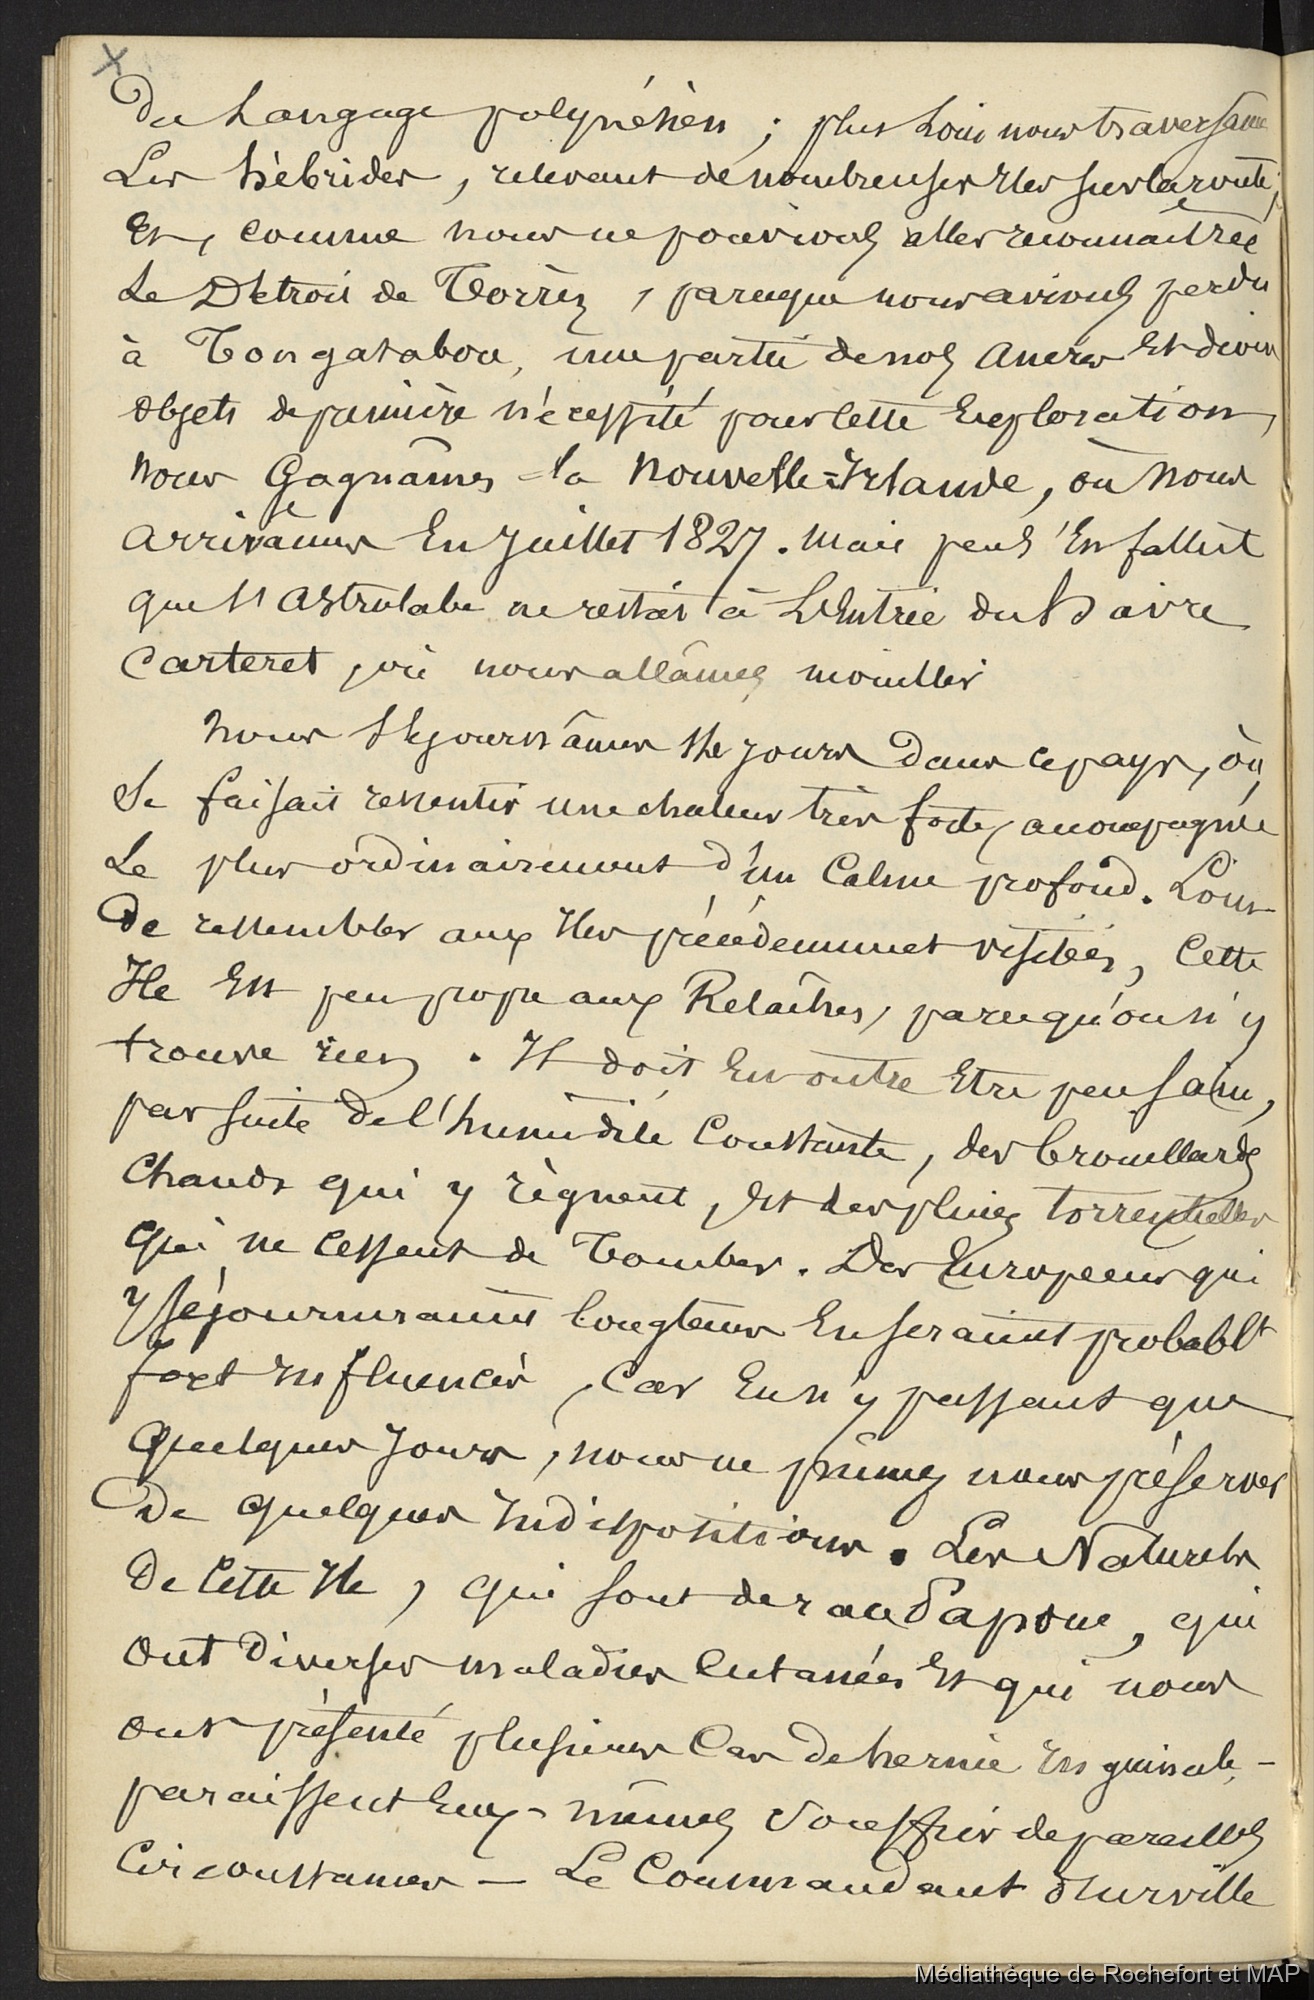 X
Du Langage polynésien ; plus Loin nous traversâmes
Les hébrides, relevant de nombreuses Iles sur la route ;
Et, comme nous ne pouvions aller reconnaître
Le Détroit de Torrès, parceque nous avions perdu
à Tongatabou, une partie de nos Ancres Et divers
objets de première nécessité pour cette Exploration,
nous Gagnâmes la Nouvelle=Irlande, où nous
arrivâmes En Juillet 1827. Mais peu s'En fallut
que l'Astrolabe ne restât à L'Entrée du havre
Carteret, où nous allâmes mouiller
Nous Séjournâmes  jours Dans ce pays, où,
Se faisait ressentir une chaleur très forte, accompagnée
Le plus ordinairement d'un Calme profond. Loin
De ressembler aux Iles précédemmet visitées, Cette
Ile Est peu propre aux Relâches, parcequ'on n'y
trouve rien. Il doit En outre Etre peu Sain,
par suite de l'humidité Constante, des brouillards
Chauds qui y règnent, Et des pluies torrentielles
Qui ne cessent de Tomber. Des Européens qui
y Séjourneraient longtems En seraient probablt
fort Influencés, Car En n'y passant que
Quelques Jours, nous ne pûmes nous préserver
De Quelques Indispositions. Les Naturels
De Cette Ile, qui sont de race Papoue, qui
ont Diverses maladies Cutanées Et qui nous
ont présenté plusieurs Cas De hernie Inguinale,-
paraissent Eux-mêmes Souffrir de pareilles
Circonstances — Le Commandant d'Urville
Médiathèque de Rochefort et MAP